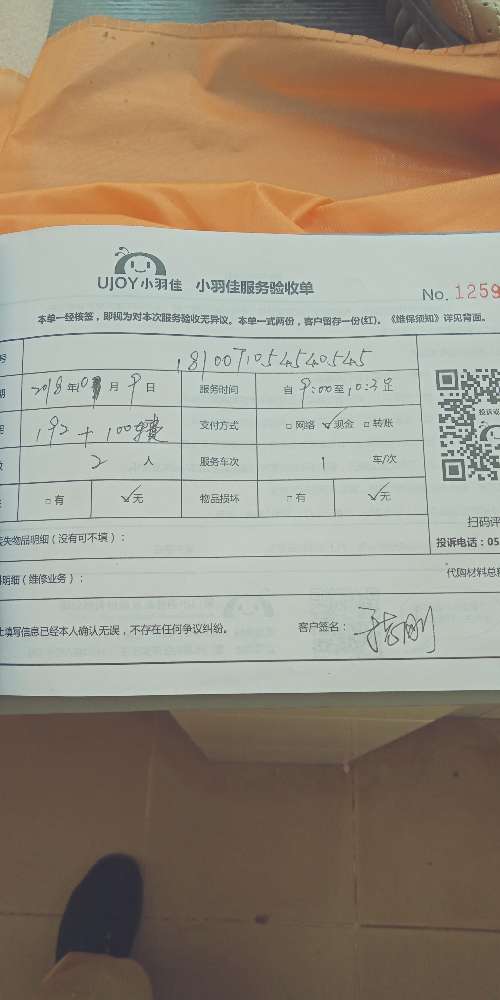 UJOY小羽佳 小羽佳服务验收单
No. 1259
本单一经核签，即视为对本次服务验收无异议。本单一式两份，客户留存一份(红)。《维保须知》详见背面。
181007105454054545
期 2018年 月9日 服务时间 自9:00至10:3
192+100 支付方式 □网络 ☑现金 □转账
2人 服务车次 1 车/次
□有 ☑无 物品损坏 □有 ☑无
扫码评
失物品明细（没有可不填）：
投诉电话：05
明细（维修业务）：
代购材料总
填写信息已经本人确认无误，不存在任何争议纠纷。 客户签名：